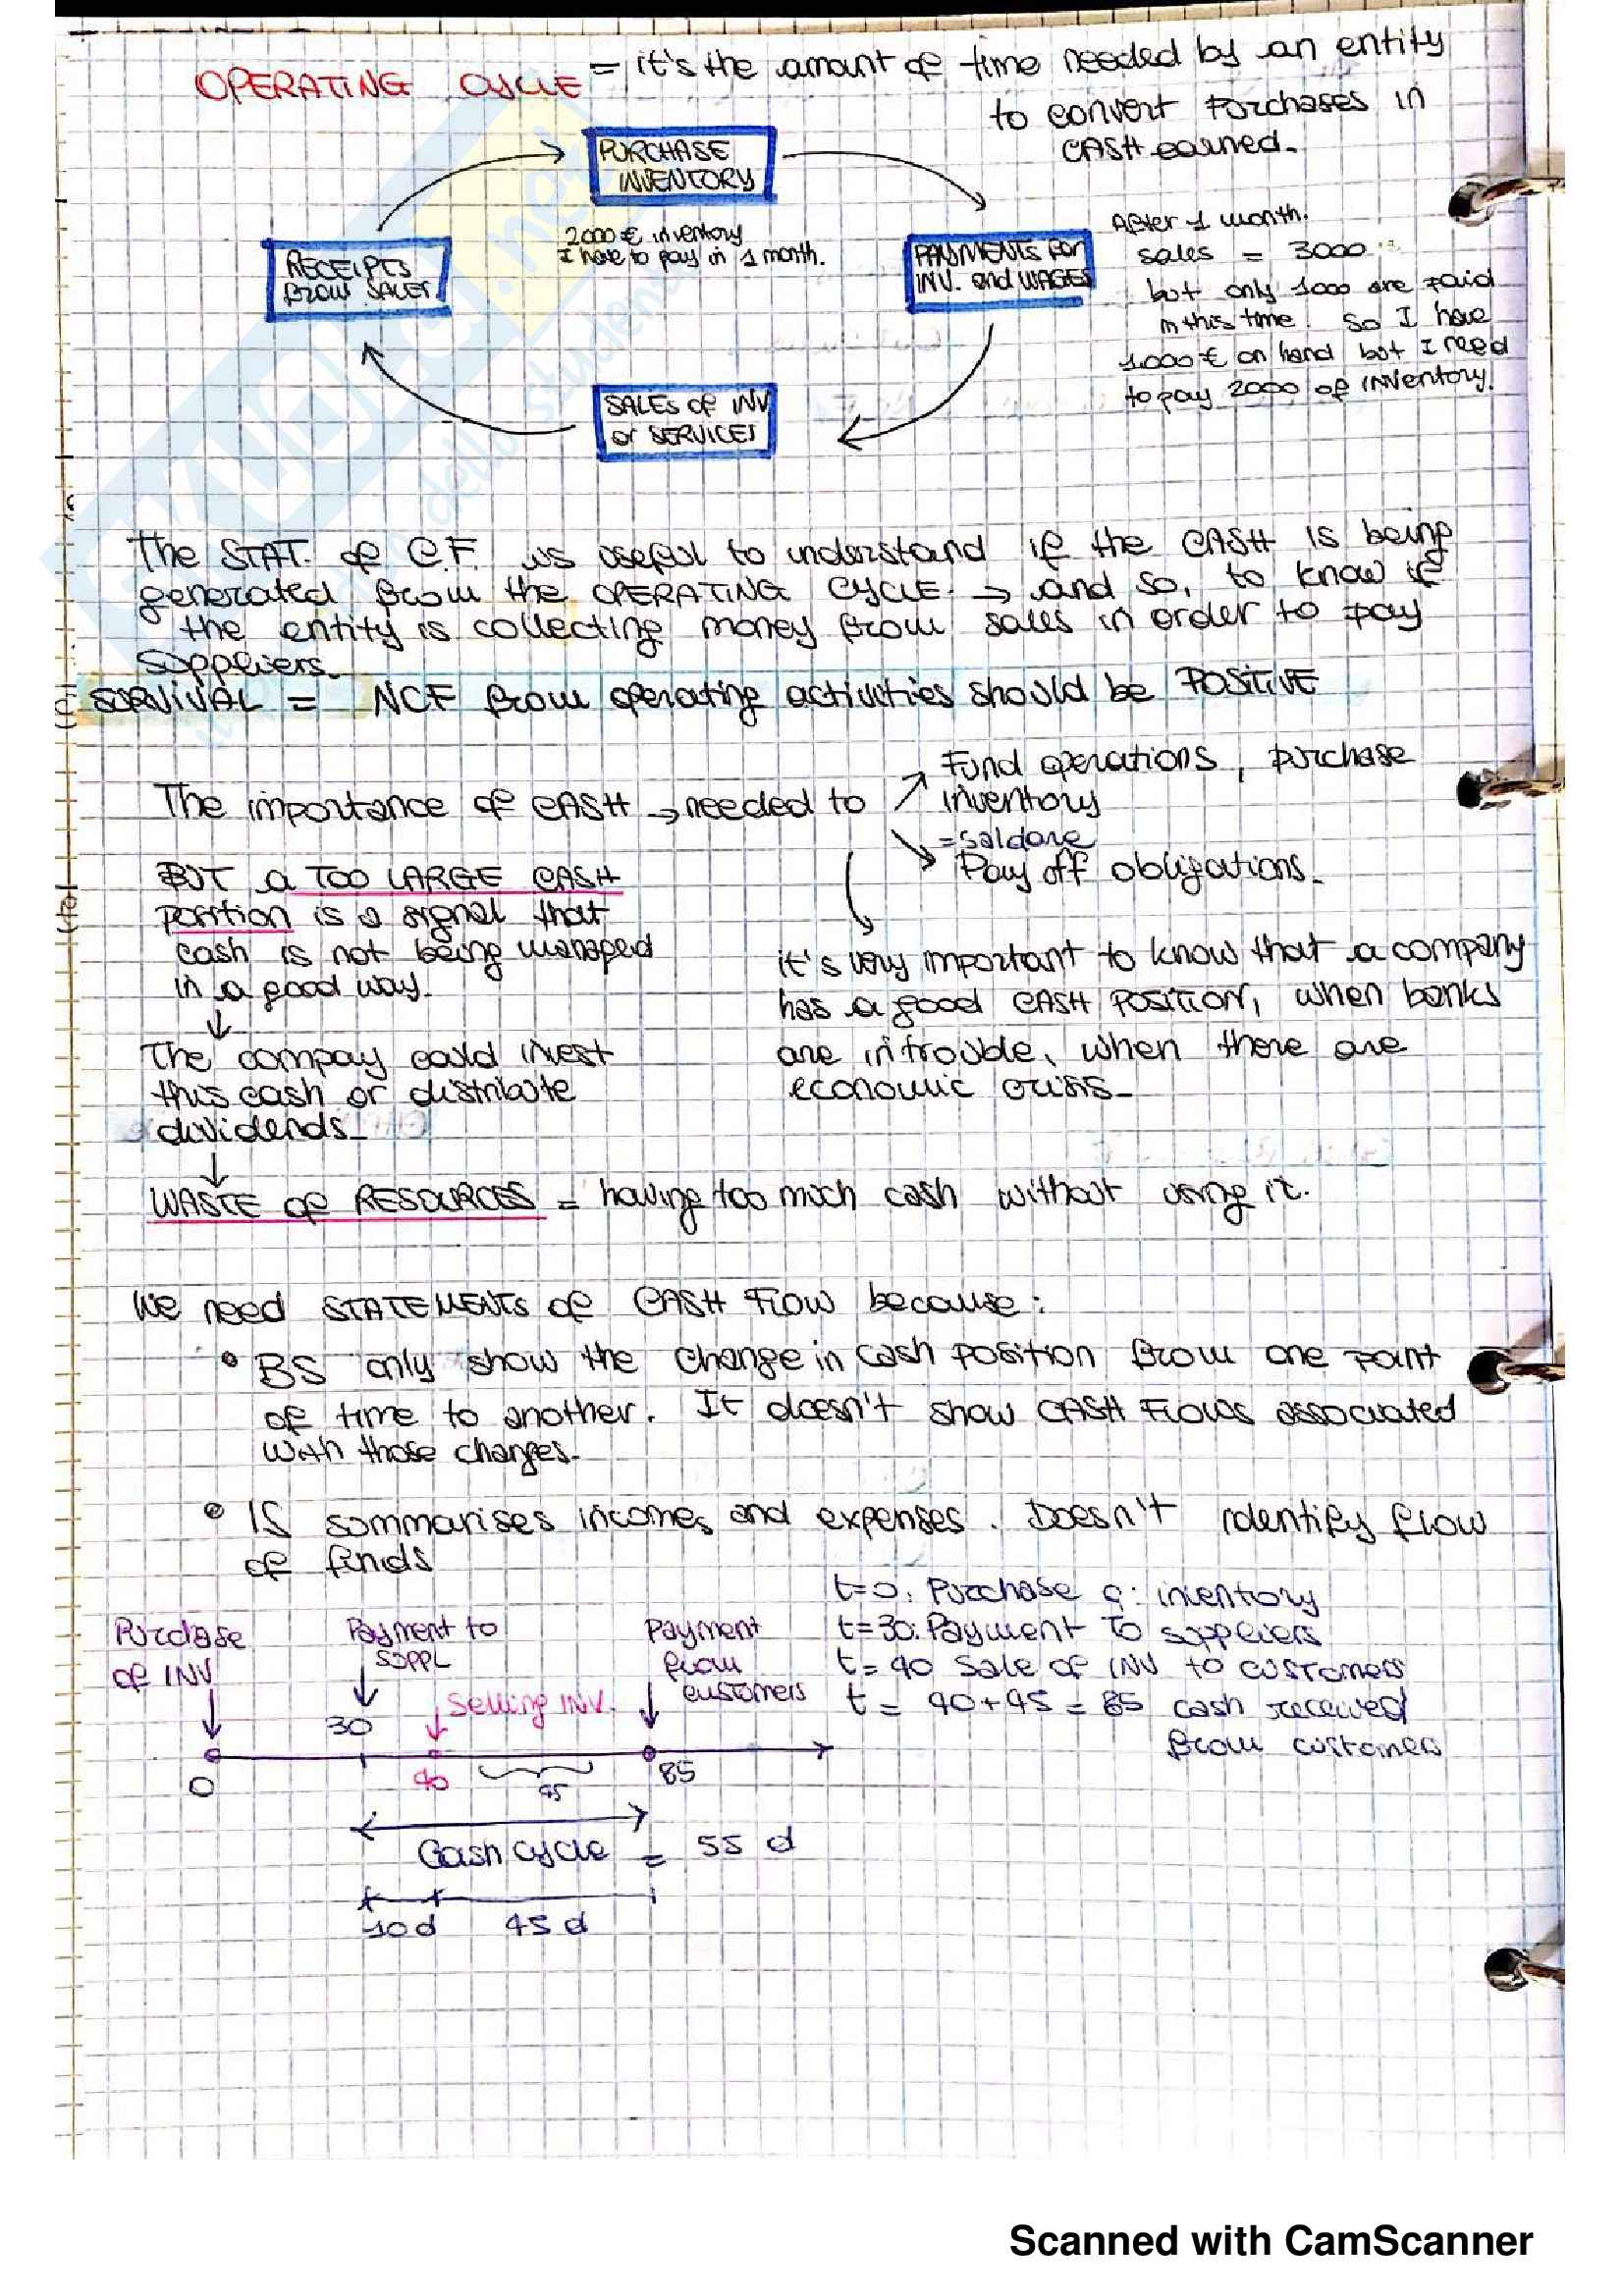 OPERATING CYCLE = it's the amount of time needed by an entity
to convert purchases in
CASH earned.
PURCHASE
INVENTORY
2000 € inventory
I have to pay in 1 month.
RECEIPTS
from SALES
PAYMENTS FOR
INV. and WAGES
After 1 month.
sales = 3000
but only 1000 are paid
in this time. So I have
1000 € on hand but I need
to pay 2000 of INVentory.
SALES of INV
or SERVICES
The STAT. of C.F. is useful to understand if the CASH is being
generated from the OPERATING CYCLE → and so, to know if
the entity is collecting money from sales in order to pay
suppliers.
SURVIVAL = NCF from operating activities should be POSITIVE
The importance of CASH → needed to
Fund operations, purchase
inventory
= saldare
Pay off obligations.
BUT a TOO LARGE CASH
position is a signal that
cash is not being managed
in a good way.
The compay could invest
this cash or distribute
dividends.
it's very important to know that a company
has a good CASH POSITION, when banks
are in trouble, when there are
economic crisis.
WASTE of RESOURCES = having too much cash without using it.
We need STATEMENTS of CASH FLOW because:
• BS only show the change in cash position from one point
of time to another. It doesn't show CASH FLOWS associated
with those changes.
• IS summarises incomes and expenses. Doesn't identify flow
of funds
t=0: Purchase of inventory
t=30: Payment to suppliers
t= 40 Sale of INV to customers
t = 40+45 = 85 cash received
from customers
Purchase
of INV
Payment to
SUPPL
Selling INV.
Payment
from
customers
0
30
40
45
85
Cash cycle = 55 d
10 d 45 d
Scanned with CamScanner